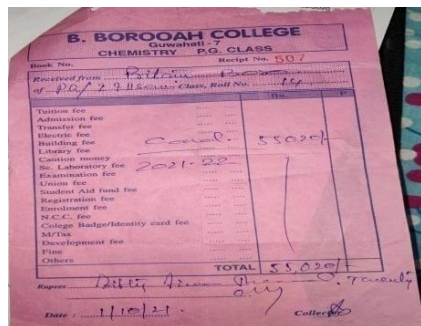 B. BOROOAH COLLEGE
Guwahati - 7
CHEMISTRY P.G. CLASS
Book No. Receipt No. 507
Received from
of Class, Roll No. 14
Rs. P.
Tuition fee
Admission fee
Transfer fee
Electric fee
Building fee 55020/-
Library fee
Caution money
Sc. Laboratory fee 2021-22
Examination fee
Union fee
Student Aid fund fee
Registration fee
Enrolment fee
N.C.C. fee
Colege Badge/Identity card fee
M/Tax
Development fee
Fine
Others
TOTAL 55,020/-
Rupees Fifty Twenty
only
Date : 1/10/21. Collector